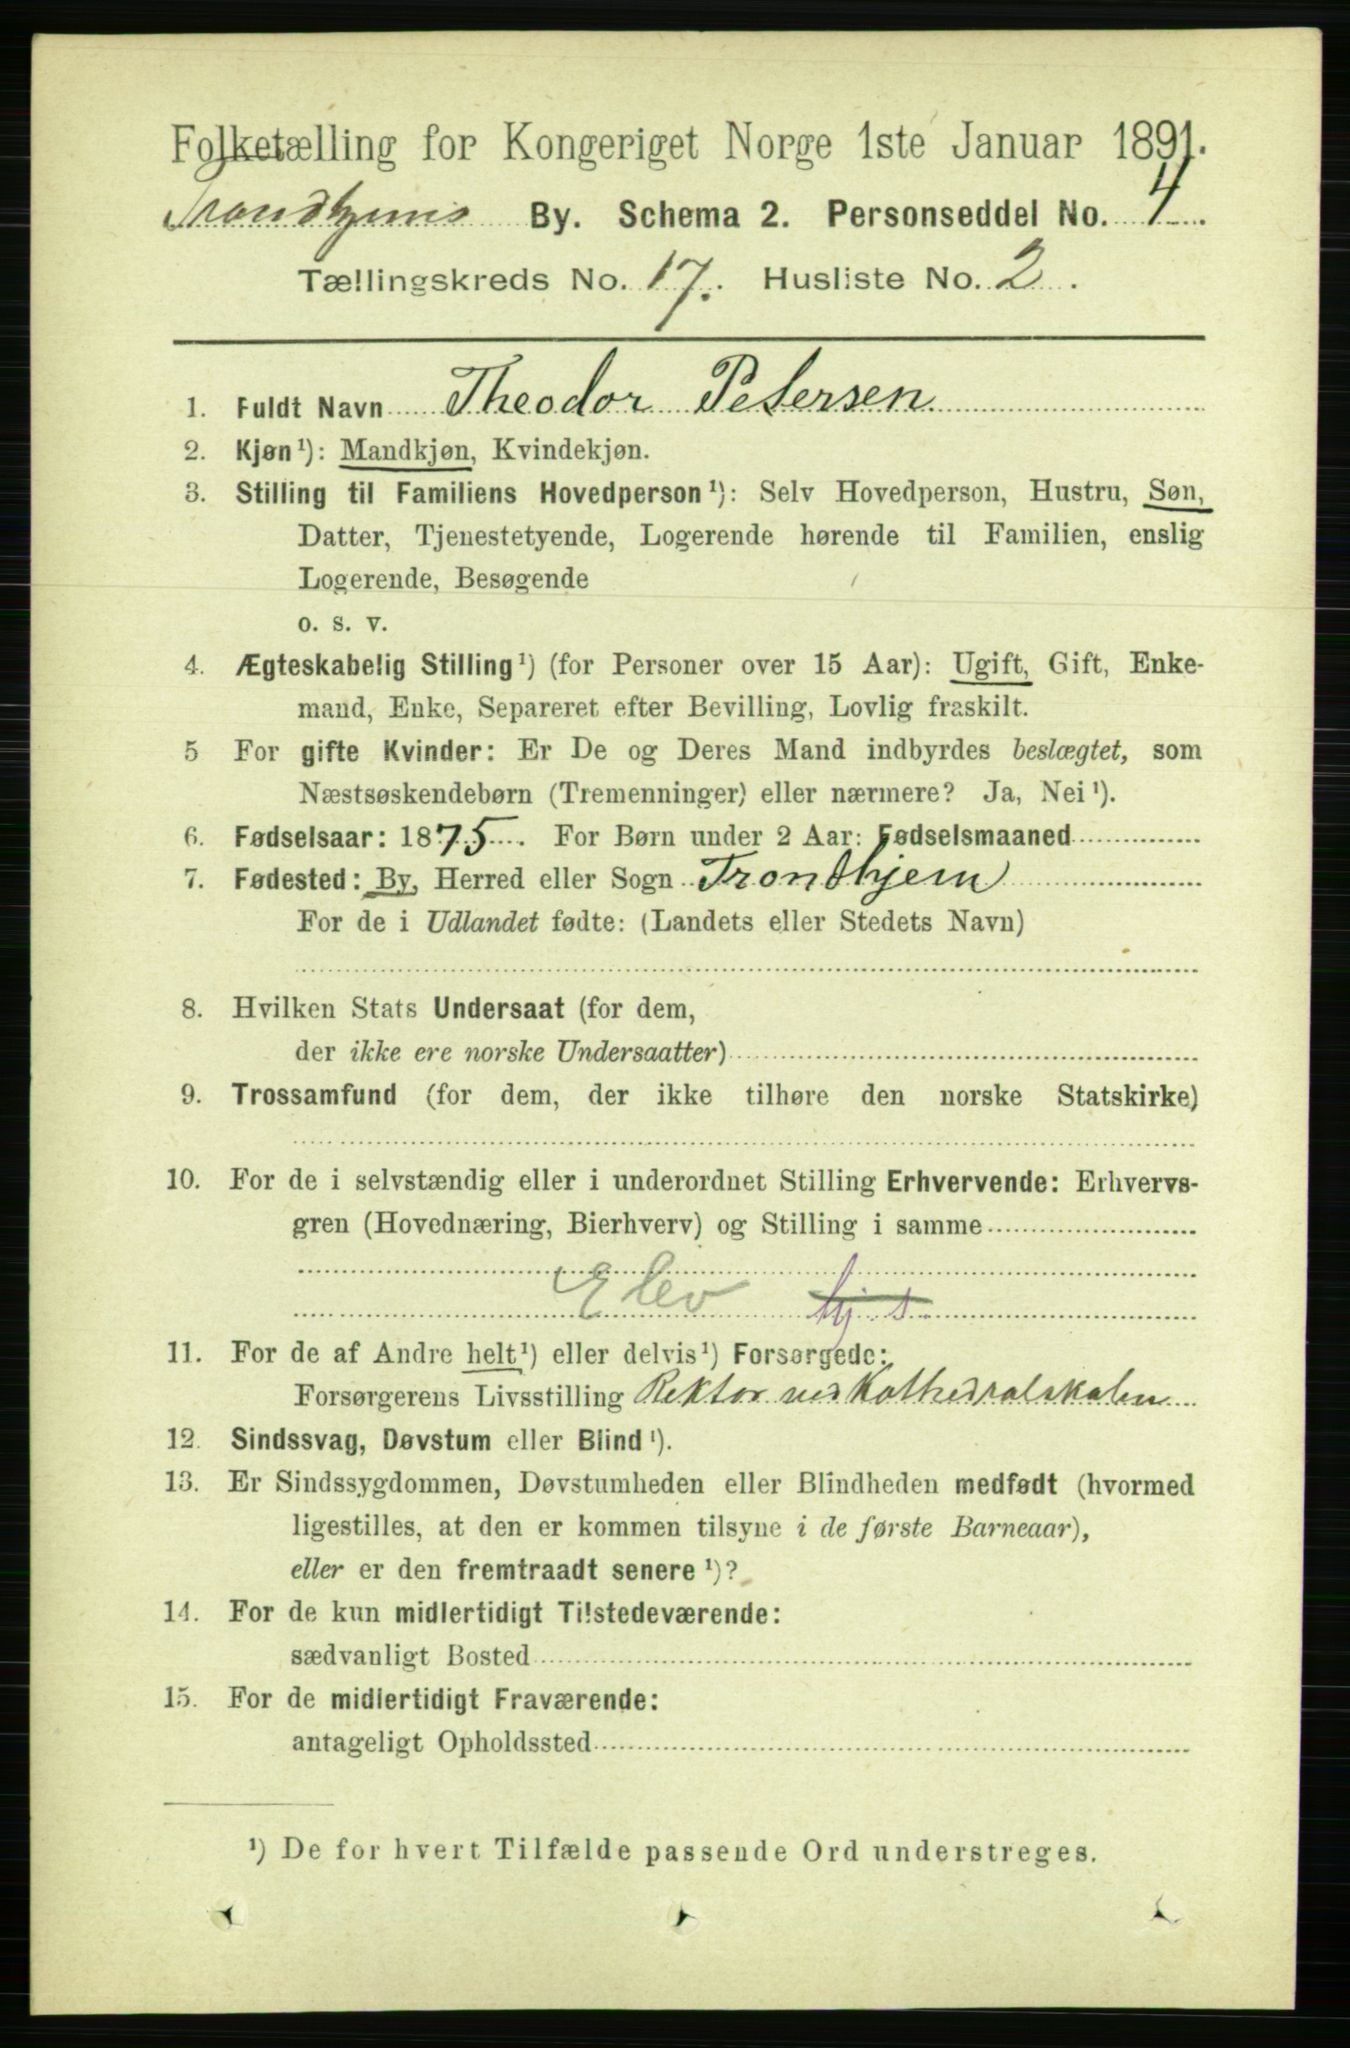 Folketælling for Kongeriget Norge 1ste Januar 1891.
Trondhjems By. Schema 2. Personseddel No. 4
Tællingskreds No. 17. Husliste No. 2.
1. Fuldt Navn Theodor Petersen
2. Kjøn¹): Mandkjøn, Kvindekjøn.
3. Stilling til Familiens Hovedperson¹): Selv Hovedperson, Hustru, Søn,
Datter, Tjenestetyende, Logerende hørende til Familien, enslig
Logerende, Besøgende
o. s. v.
4. Ægteskabelig Stilling¹) (for Personer over 15 Aar): Ugift, Gift, Enke-
mand, Enke, Separeret efter Bevilling, Lovlig fraskilt.
5 For gifte Kvinder: Er De og Deres Mand indbyrdes beslægtet, som
Næstsøskendebørn (Tremenninger) eller nærmere? Ja, Nei¹).
6. Fødselsaar: 1875. For Børn under 2 Aar: Fødselsmaaned
7. Fødested: By, Herred eller Sogn Trondhjem
For de i Udlandet fødte: (Landets eller Stedets Navn)
8. Hvilken Stats Undersaat (for dem,
der ikke ere norske Undersaatter)
9. Trossamfund (for dem, der ikke tilhøre den norske Statskirke)
10. For de i selvstændig eller i underordnet Stilling Erhvervende: Erhvervs-
gren (Hovednæring, Bierhverv) og Stilling i samme
Elev
11. For de af Andre helt¹) eller delvis¹) Forsørgede:
Forsørgerens Livsstilling Rektor ved Kathedralskolen
12. Sindssvag, Døvstum eller Blind¹).
13. Er Sindssygdommen, Døvstumheden eller Blindheden medfødt (hvormed
ligestilles, at den er kommen tilsyne i de første Barneaar),
eller er den fremtraadt senere¹)?
14. For de kun midlertidigt Tilstedeværende:
sædvanligt Bosted
15. For de midlertidigt Fraværende:
antageligt Opholdssted
¹) De for hvert Tilfælde passende Ord understreges.